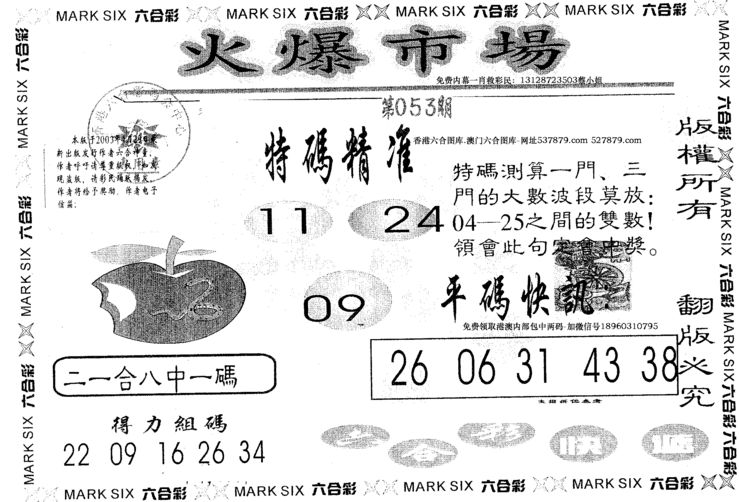 MARK SIX 六合彩 MARK SIX 六合彩 MARK SIX 六合彩 MARK SIX 六合彩
火爆市場
免费内幕一肖救彩民：13128723503蔡小姐
第053期
特碼精准
香港六合图库-澳门六合图库-网址537879.com 527879.com
11 24
09
特碼測算一門、三
門的大數波段莫放：
04—25之間的雙數！
領會此句定會中獎。
平碼快訊：
免费领取港澳内部包中两码-加微信号18960310795
26 06 31 43 38
二一合八中一碼
得力組碼
22 09 16 26 34
六合彩快遞
版權所有
翻版必究
MARK SIX 六合彩 MARK SIX 六合彩 MARK SIX 六合彩
MARK SIX 六合彩 MARK SIX 六合彩 MARK SIX 六合彩
MARK SIX 六合彩 MARK SIX 六合彩 MARK SIX 六合彩 MARK SIX 六合彩